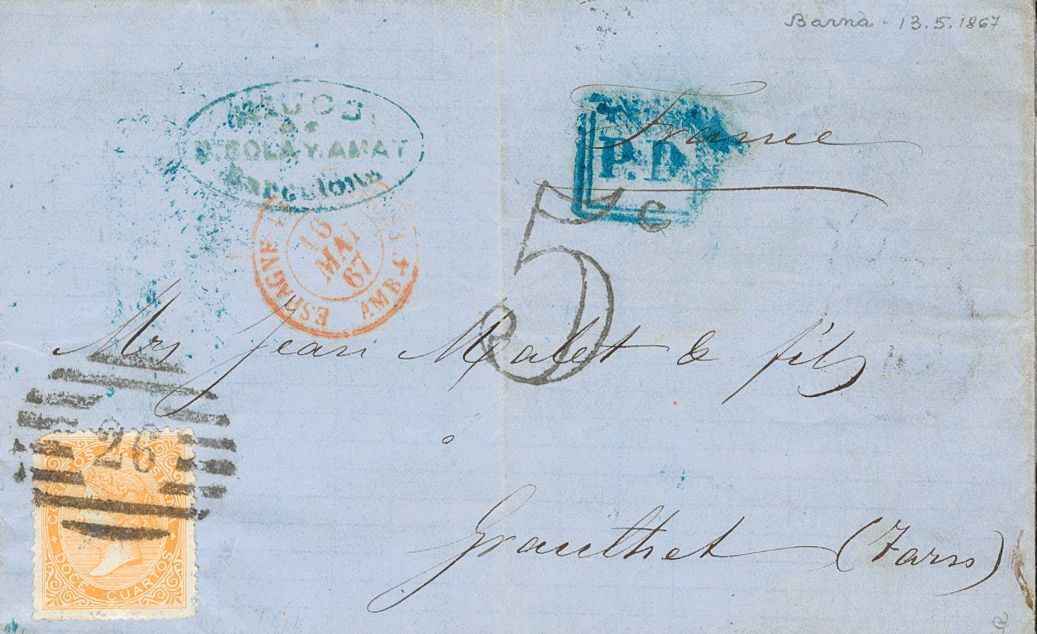 Barna - 13.5.1867
HIJOS
DE
D. SOLA Y AMAT
Barcelona
France
P.D.
5 c
ESPAGNE
AMB.
16
MAI
67
Mrs Jean Malet & fils
à
Graulhet (Tarn)
26
CORREOS DE ESPAÑA
DOCE CUARTOS